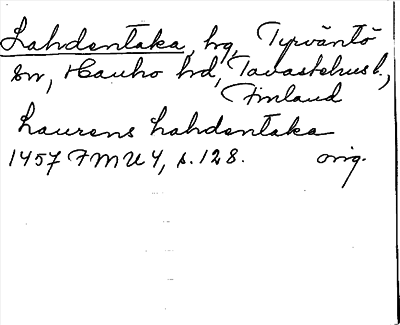 Lahdentaka, hg, Tyrväntö
sn, Hauho hd, Tavastehus l.,
Finland
Laurens Lahdentaka
1457 FMU 4, s. 128. orig.